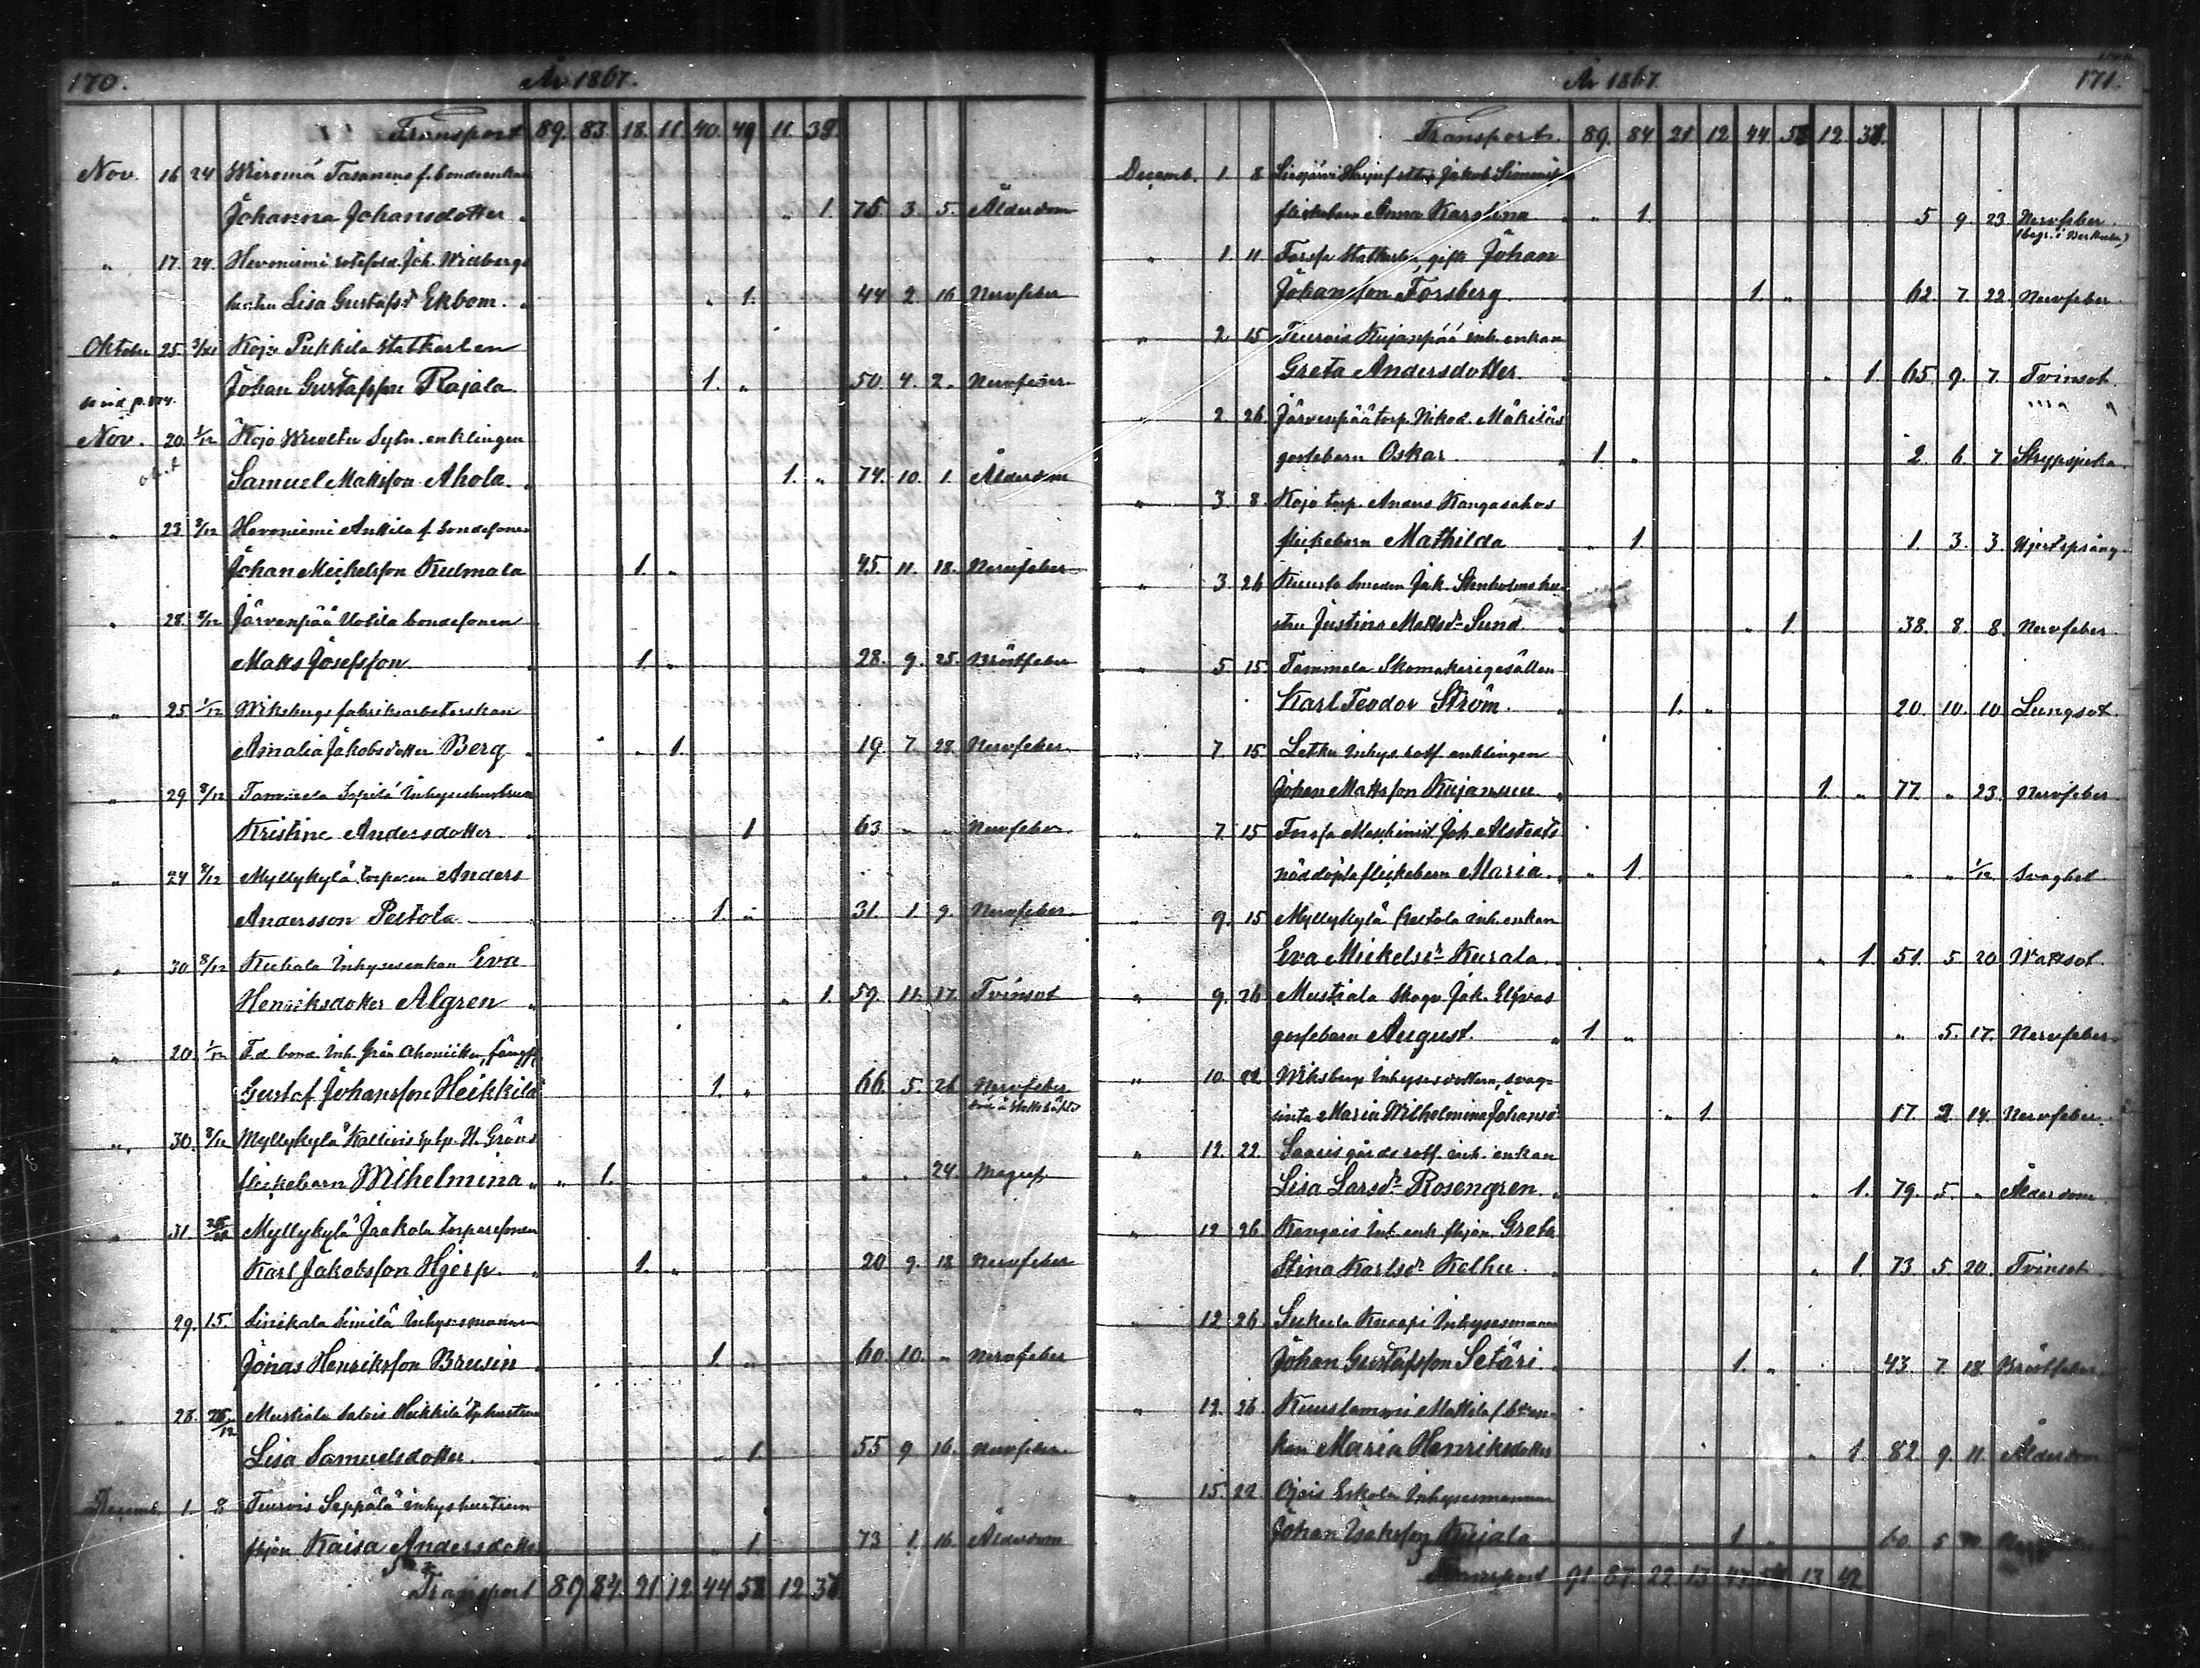 170. År 1867.
Transport 89. 83. 18. 11. 40. 49 11. 38.
Nov. 16 24 Wieremä Tasanens f. bondeenkan
Johanna Johansdotter " 1. 75 3. 5. Ålderdom
" 17. 24. Hevoniemi rotesold. Joh. Widbergs
hustru Lisa Gustafsdr Ekbom. " 1. 44 2. 16 Nervfeber
Oktober 25. 3/11 Kojo Pukkila Statkarlen
Johan Gustafsson Rajala 1. " 50. 4. 2. Nervfeber
Nov. 20. 1/12 Kojo Sytn. enklingen
Samuel Mattsson Ahola. 1. " 74. 10. 1. Ålderdom
" 23 8/12 Hevoniemi Anttila f. bondesonen
Johan Michelsson Kulmala 1. " 45. 11. 18. Nervfeber
" 28. 8/12 Järvenpää Uotila bondesonen
Matts Josefsson 1. " 28. 9. 25. Bröstfeber
" 25 1/12 Wiksbergs fabriksarbeterskan
Amalia Jakobsdotter Berg " 1. 19. 7. 28. Nervfeber
" 29 8/12 Tammela Inhyseshustrun
Kristina Andersdotter 1 63 " " Nervfeber.
" 24 8/12 Myllykylä torparen Anders
Andersson Peltola 1. " 31. 1 9. Nervfeber.
" 30 8/12 Kukala Inhysesenkan Eva
Henriksdotter Algren " 1. 59. 11. 17. Tvinsot
" 20. 1/12 F.d. bond. Inh. från
Gustaf Johansson Heikkilä 1. " 66. 5. 26 Nervfeber
" 30. 8/12 Myllykylä Kallivis
flickebarn Wilhelmina " " 1. " " 24. Magref
" 31. 26/12 Myllykylä Jaakola torparesonen
Karl Jakobsson Hjerp. 1. " 20 9. 18 Nervfeber
" 29. 15. Sinikala Simila Inhysesmannen
Jonas Henriksson Brusin 1. " 60. 10. " Nervfeber
" 28. 26/12 Mustiala Salois Heikkilä
Lisa Samuelsdotter. " 1. 55 9 16. Nervfeber
Decemb. 1. 8 Teurois Seppälä inhyshustrun
Kaisa Andersdotter " 1. 73 1. 16 Ålderdom
Transport 89 84. 21 12 44 58 12 38
År 1867. 171.
Transport. 89. 84 21 12 44 58 12 38.
Decemb. 1. 8 Jakob
flickebarn Anna Karolina " 1. 5 9. 23 Nervfeber
" 1 11. Forssa Statkarlen, gifte Johan
Johansson Forsberg 1. " 62. 7. 22 Nervfeber
" 2. 15 Teurois Kujanpää inh. enkan
Greta Andersdotter. " 1 65 9. 7. Tvinsot.
2. 26. Järvenpää torp. Nikod. Mäkiläs
gossebarn Oskar. 1. " 2. 6. 7
" 3. 8. Kojo torp. Kangasahos
flickebarn Mathilda " 1. 1. 3. 3
" 3. 26 Kuusto Smeden Jak. Stenholms hu-
stru Justina Mattsdr Sund. " 1. 38. 8. 8. Nervfeber
" 5. 15 Tammela Skomakeregesällen
Karl Teodor Ström. 1. " 20. 10. 10 Lungsot
" 7. 15. Letku Inhys. rotf. enklingen
Johan Mattsson Kujansuu 1. " 77. " 23. Nervfeber
" 7. 15 Forssa Maschinist. Joh.
nöddöpta flickebarn Maria. " 1. " " 1/12 Svaghet
" 9. 15 Myllykylä Peltola inh. enkan
Eva Mickelsdr Kurala. " 1. 51. 5. 20. Wattsot.
" 9. 26 Mustiala Jak.
gossebarn August. 1. " " 5. 17. Nervfeber
" 10. 22 Wiksberg Inhysesdottern, svag-
sinta Maria Wilhelmina Johansdr " 1. 17. 2 14. Nervfeber.
" 12. 22. Saaris gårds rotf. inh. enkan
Lisa Larsdr Rosengren. " 1. 79. 5. " Ålderdom
" 12 26 Kangais Inh. enk. Greta
Stina Karlsdr Kelhu. " 1. 73 5. 20. Tvinsot
" 12. 26 Sukula Knaapi Inhysesmannen
Johan Gustafsson Setäri. 1. " 43. 7. 18. Bröstfeber
" 12. 26 Kuuslammi Mattila f. bden-
kan Maria Henriksdotter " 1. 82 9. 11. Ålderdom
" 15. 22. Ojois Eskola Inhysesmannen
Johan Isaksson Kujala 1 " 60. 5
Transport 91 87. 22 13 47 59 13 42